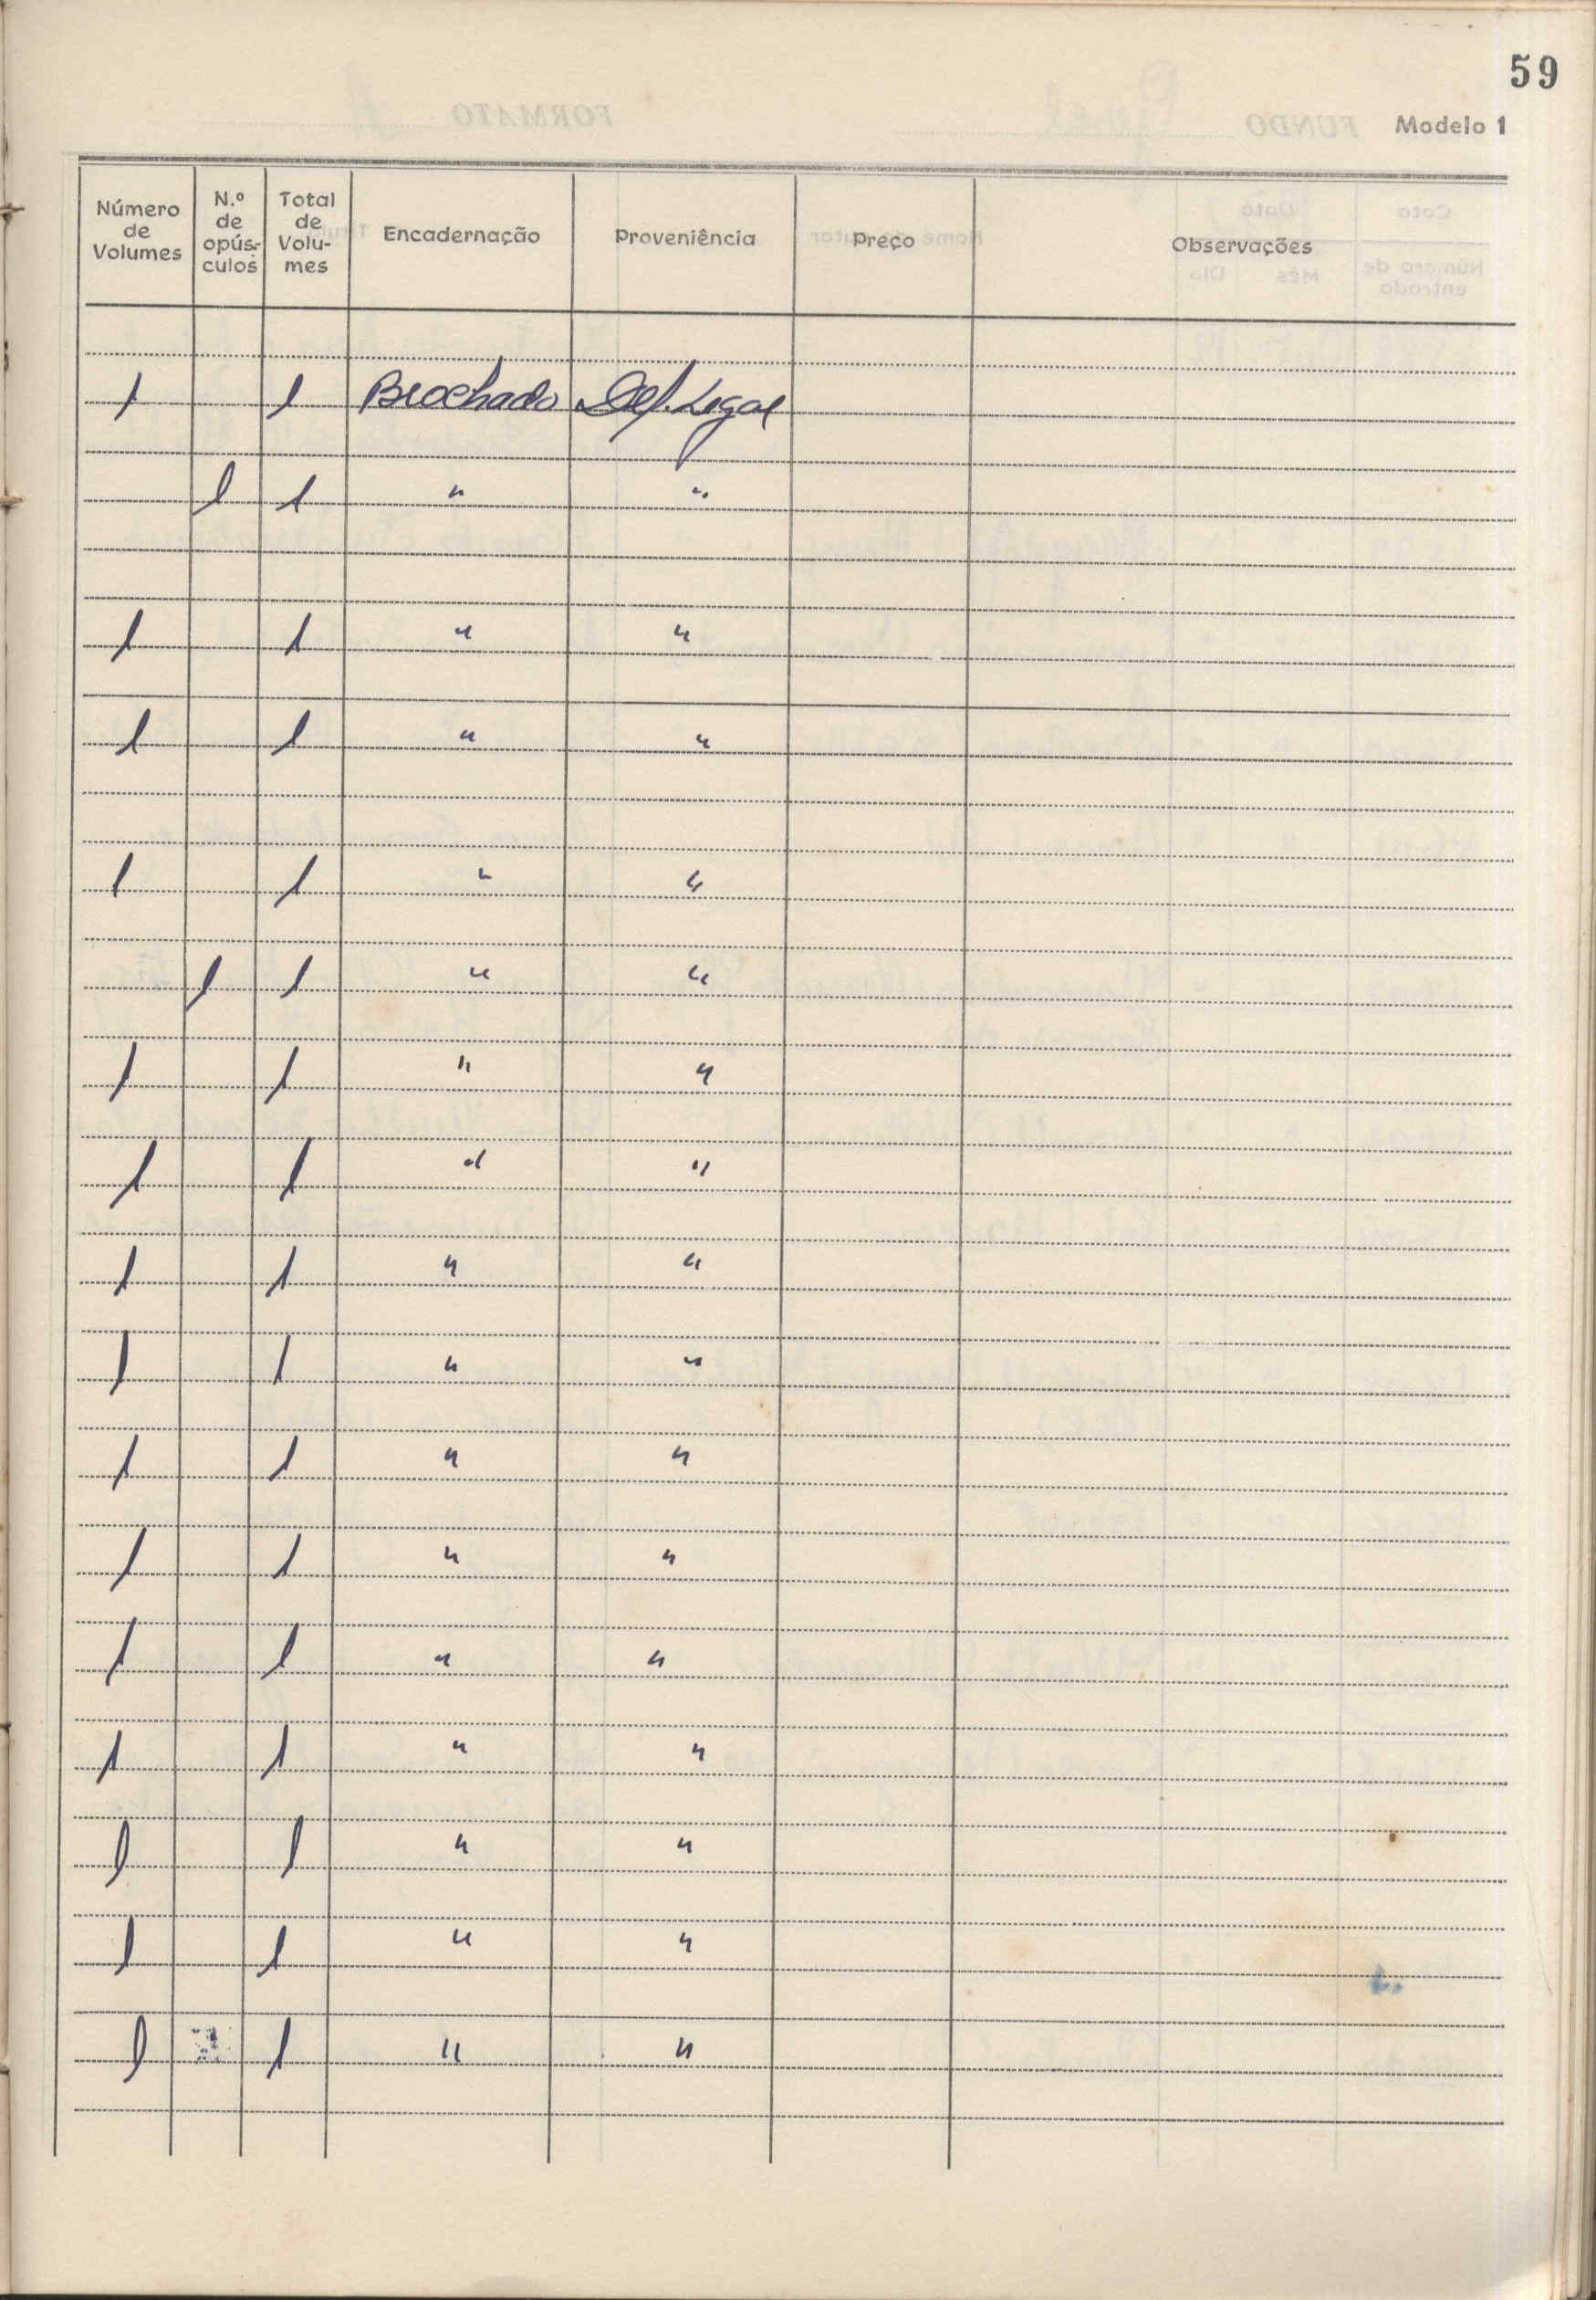 59
Modelo 1
Número de Volumes | N.º de opús-culos | Total de Volu-mes | Encadernação | Proveniência | Preço | Observações
1 | | 1 | Brochado | Dep. Legal
| 1 | 1 | " | "
1 | | 1 | " | "
1 | | 1 | " | "
1 | | 1 | " | "
| 1 | 1 | " | "
1 | | 1 | " | "
1 | | 1 | " | "
1 | | 1 | " | "
1 | | 1 | " | "
1 | | 1 | " | "
1 | | 1 | " | "
1 | | 1 | " | "
1 | | 1 | " | "
1 | | 1 | " | "
1 | | 1 | " | "
1 | | 1 | " | "